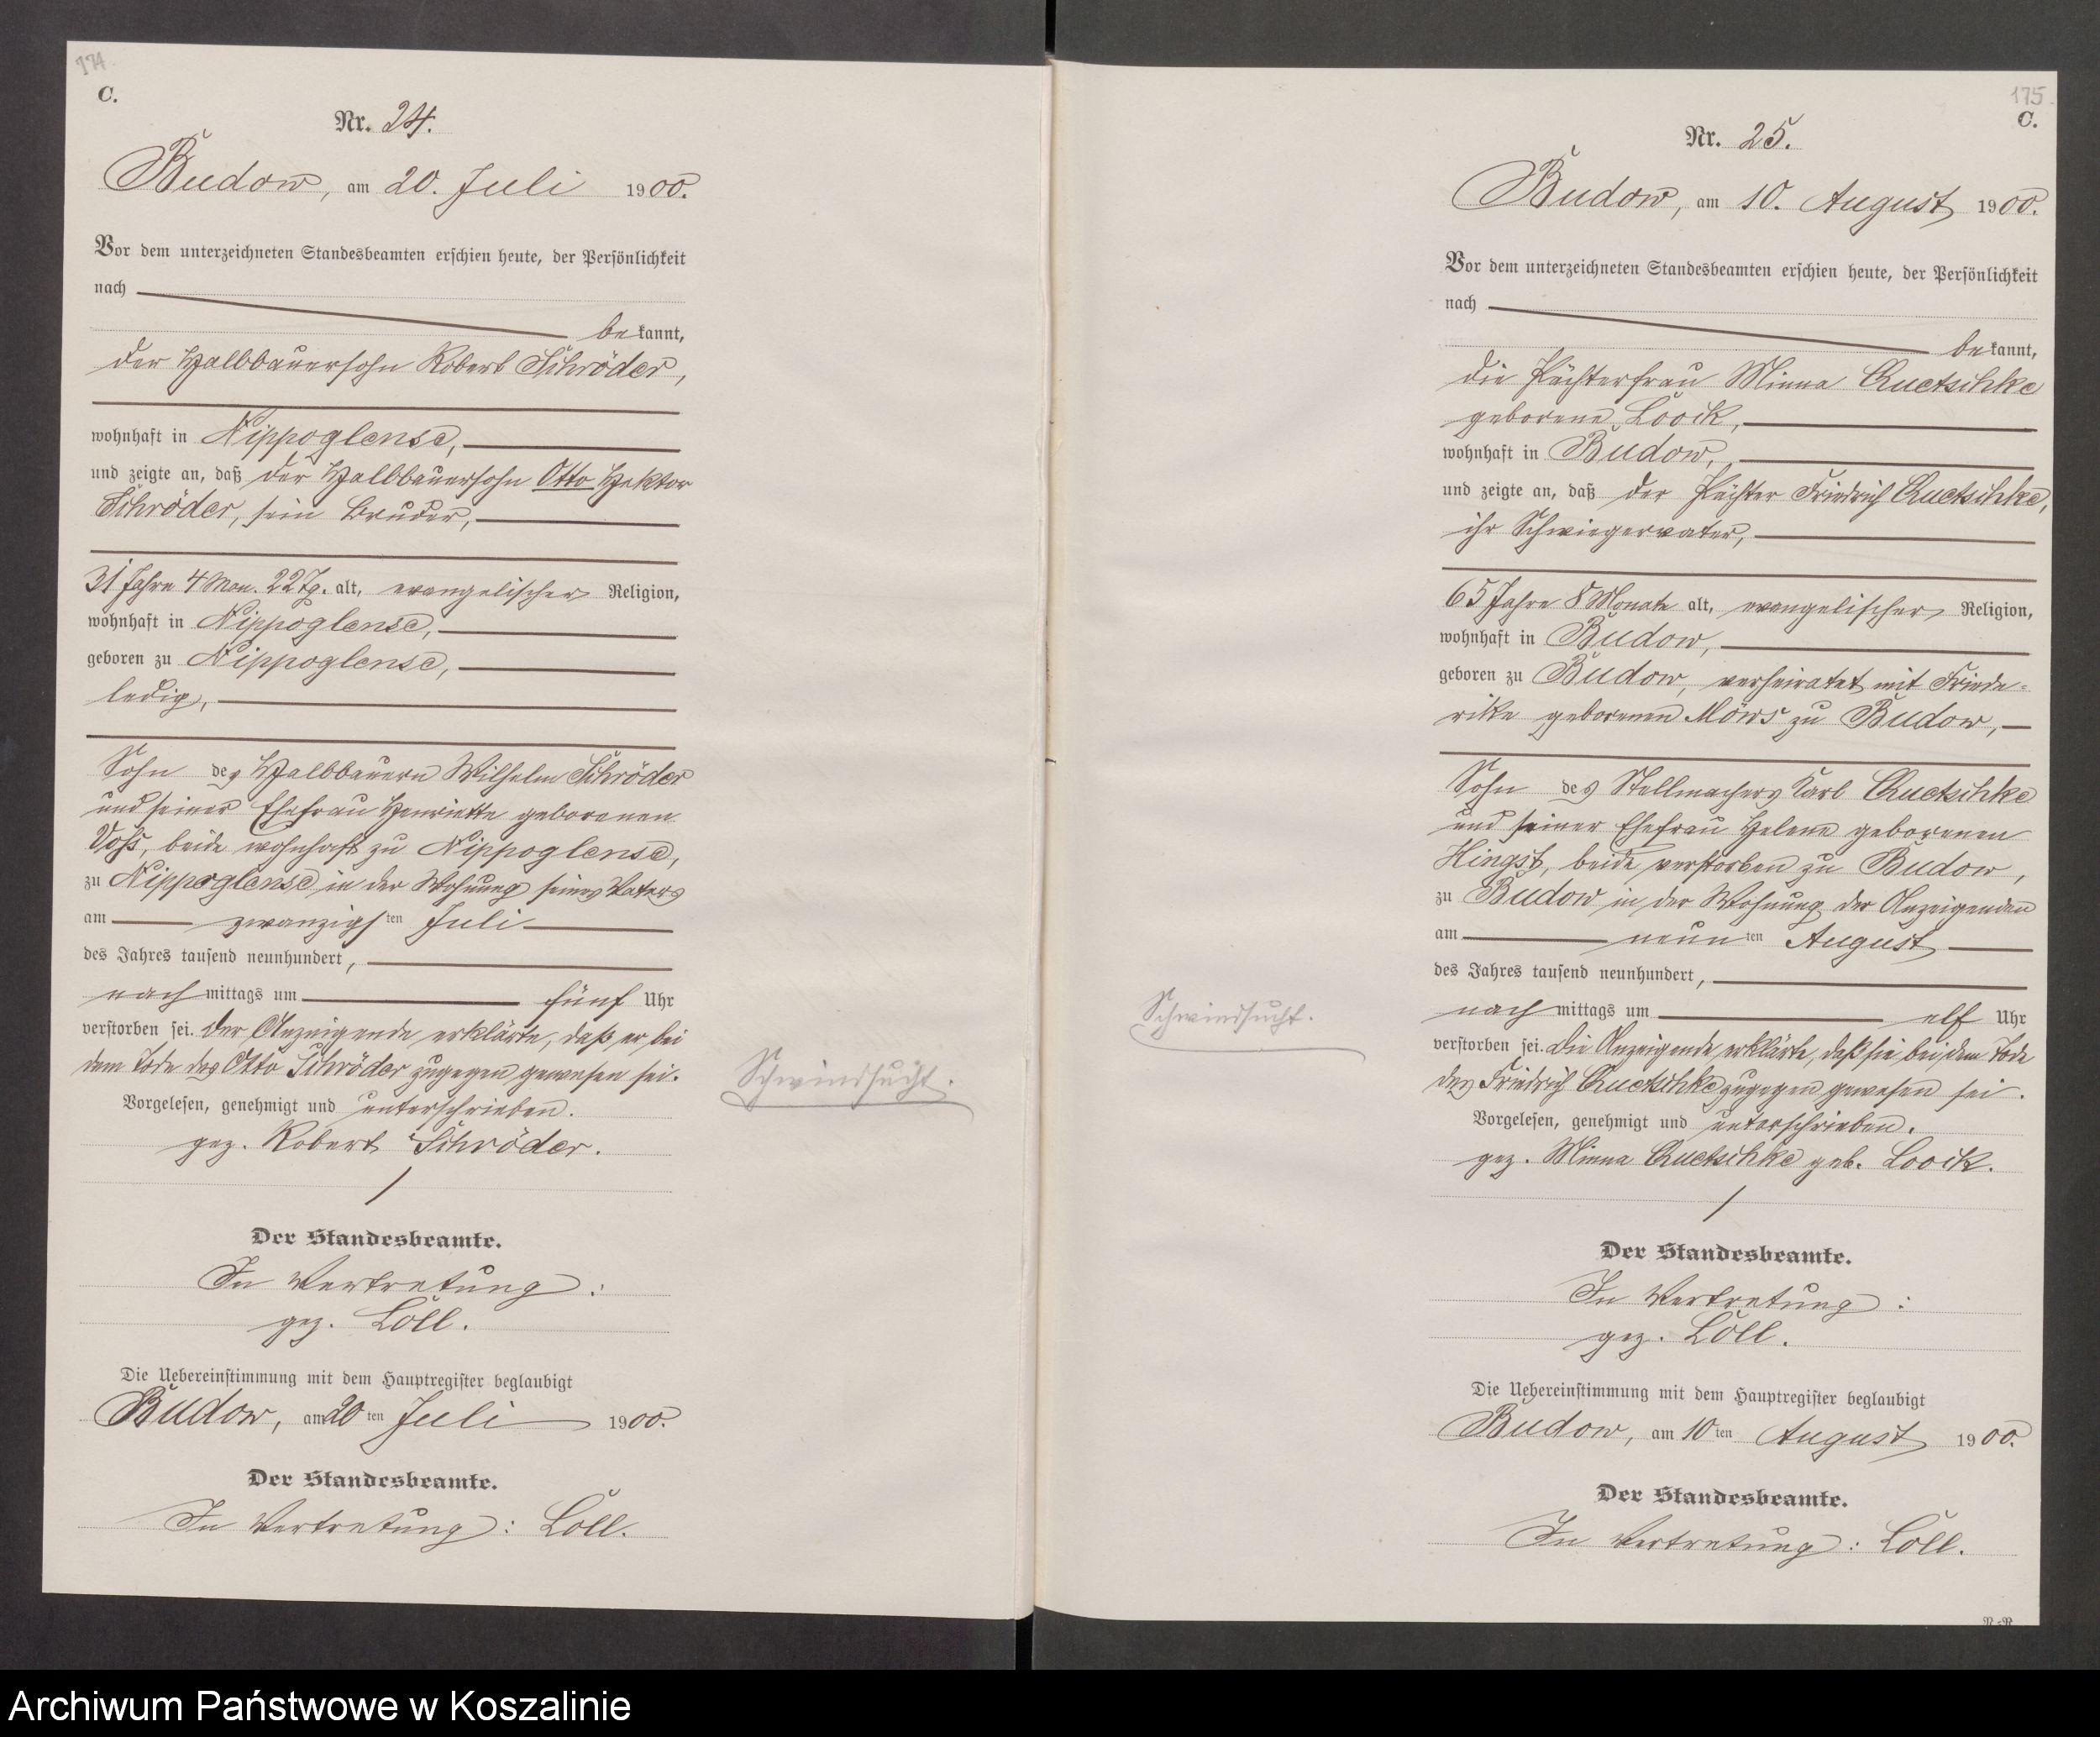 174.
C.
Nr. 24.
Budow, am 20. Juli 1900.
Vor dem unterzeichneten Standesbeamten erschien heute, der Persönlichkeit
nach
bekannt,
der Halbbauersohn Robert Schröder,
wohnhaft in Nippoglense,
und zeigte an, daß der Halbbauersohn Otto Hektor
Schröder, sein Bruder,
31 Jahre 4 Mon. 22 Tg. alt, evangelischer Religion,
wohnhaft in Nippoglense,
geboren zu Nippoglense,
ledig,
Sohn des Halbbauern Wilhelm Schröder
und seiner Ehefrau Henriette geborenen
Voß, beide wohnhaft zu Nippoglense,
zu Nippoglense in der Wohnung seines Vaters
am zwanzigsten Juli
des Jahres tausend neunhundert,
nachmittags um fünf Uhr
verstorben sei. Der Anzeigende erklärte, daß er bei
dem Tode des Otto Schröder zugegen gewesen sei.
Vorgelesen, genehmigt und unterschrieben.
gez. Robert Schröder.
Der Standesbeamte.
In Vertretung:
gez. Löll.
Die Uebereinstimmung mit dem Hauptregister beglaubigt
Budow, am 20ten Juli 1900.
Der Standesbeamte.
In Vertretung: Löll.
Schwindsucht.
175.
C.
Nr. 25.
Budow, am 10. August 1900.
Vor dem unterzeichneten Standesbeamten erschien heute, der Persönlichkeit
nach
bekannt,
die Pächterfrau Minna Quetschke
geborene Loock,
wohnhaft in Budow,
und zeigte an, daß der Pächter Friedrich Quetschke,
ihr Schwiegervater,
65 Jahre 8 Monate alt, evangelischer Religion,
wohnhaft in Budow,
geboren zu Budow, verheiratet mit Friede-
rike geborenen Möws zu Budow,
Sohn des Stellmachers Karl Quetschke
und seiner Ehefrau Helene geborenen
Hingst, beide verstorben zu Budow,
zu Budow in der Wohnung der Anzeigenden
am neunten August
des Jahres tausend neunhundert,
nachmittags um elf Uhr
verstorben sei. Die Anzeigende erklärte, daß sie bei dem Tode
des Friedrich Quetschke zugegen gewesen sei.
Vorgelesen, genehmigt und unterschrieben.
gez. Minna Quetschke geb. Loock.
Der Standesbeamte.
In Vertretung:
gez. Löll.
Die Uebereinstimmung mit dem Hauptregister beglaubigt
Budow, am 10ten August 1900.
Der Standesbeamte.
In Vertretung: Löll.
Schwindsucht.
Archiwum Państwowe w Koszalinie